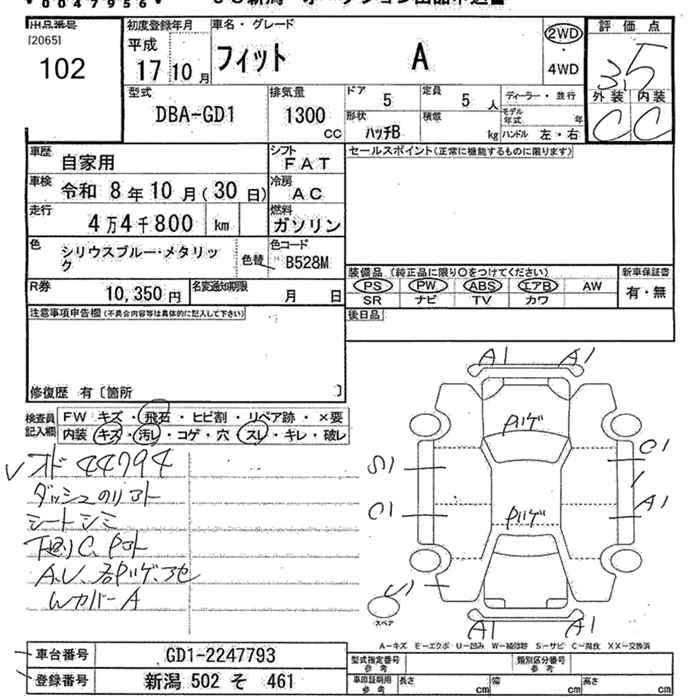 0047956
出品番号 初度登録年月 車名・グレード 2WD 評価点
[2065] 平成 ・ 3.5
102 17 10 月 フィット A 4WD 外装 内装
型式 排気量 ドア 定員 ディーラー・並行 C C
DBA-GD1 1300 cc 5 5 人 モデル年式 年
形状 ハッチB 積載 kg ハンドル 左・右
車歴 自家用 シフト FAT セールスポイント(正常に機能するものに限ります)
車検 令和 8 年 10 月 ( 30 日) 冷房 AC
走行 4 万 4 千 800 km 燃料 ガソリン
色 シリウスブルー・メタリック 色替 色コード B528M
装備品 (純正品に限り○をつけてください) 新車保証書
R券 10,350 円 名変通知期限 月 日 PS PW ABS エアB AW 有・無
SR ナビ TV カワ
注意事項申告欄 (不具合内容等は具体的に記入して下さい) 後日品
修復歴 有〔箇所 〕
検査員記入欄 FW キズ・飛石・ヒビ割・リペア跡・×要
内装 キズ・汚レ・コゲ・穴・スレ・キレ・破レ
オド 44794
シートシミ
Wカバー A
A1 A1
S1 C1
C1 A1
U1
A1 A1
スペア
A-キズ E-エクボ U-凹み W-補修跡 S-サビ C-腐食 XX-交換済
車台番号 GD1-2247793 型式指定番号 参考 類別区分番号 参考
登録番号 新潟 502 そ 461 車庫証明用 参考 長さ cm 幅 cm 高さ cm